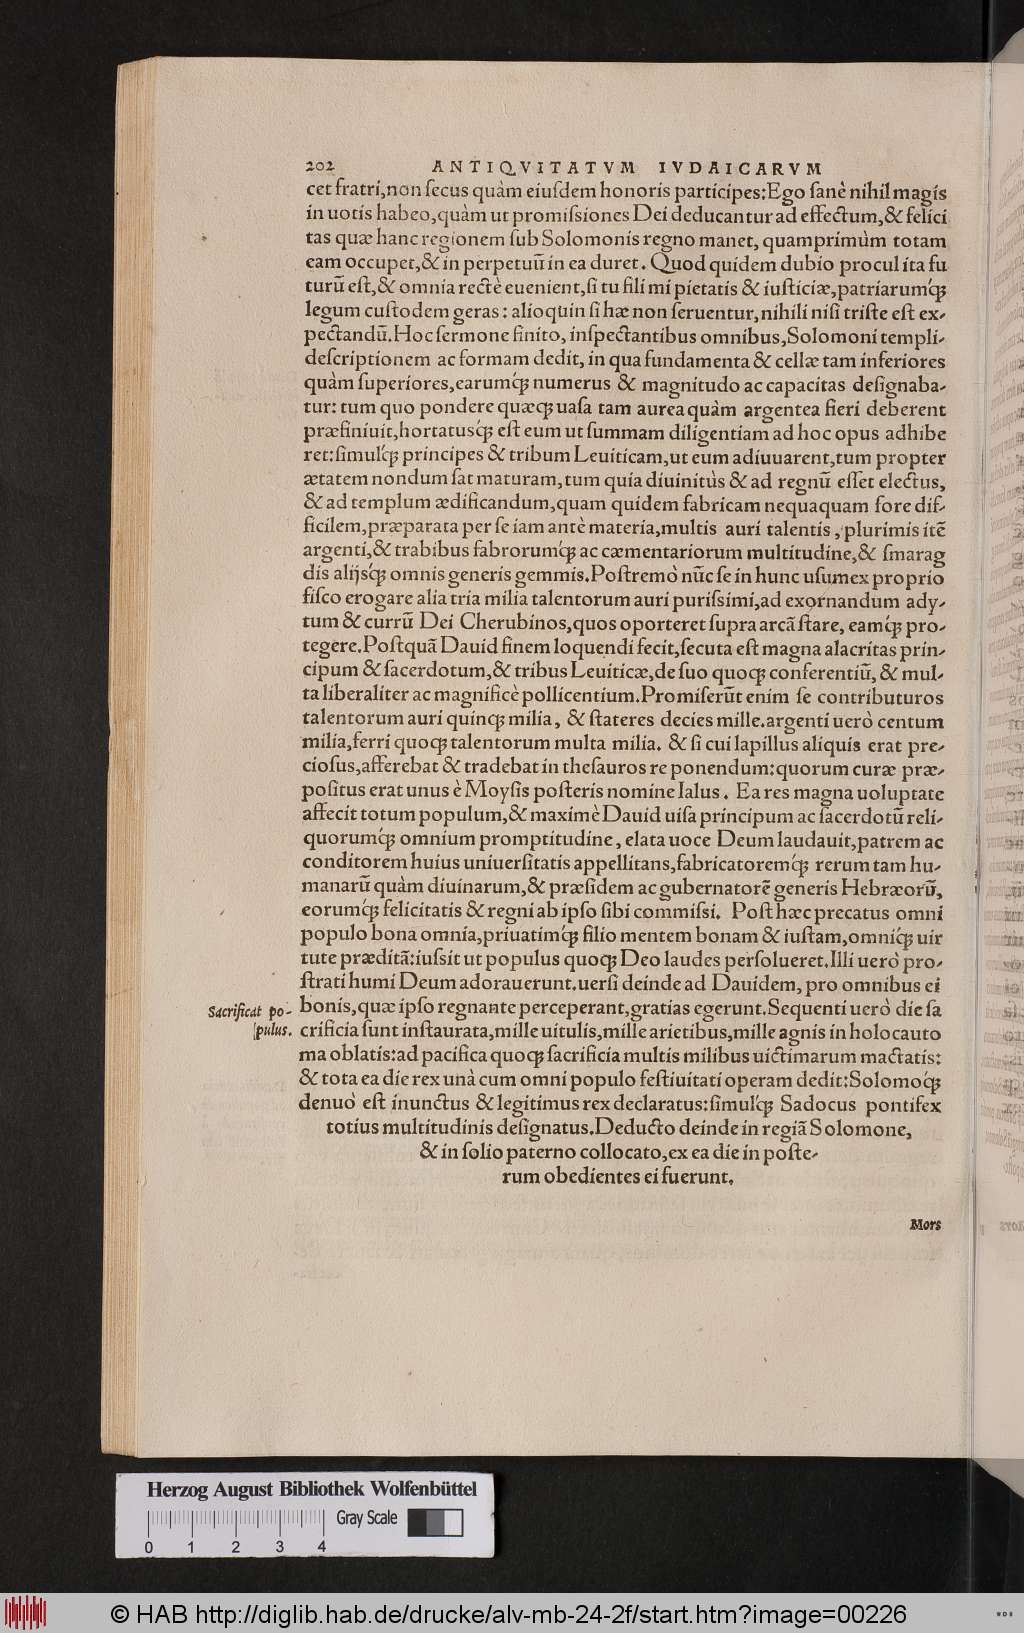 202 ANTIQVITATVM IVDAICARVM
cet fratri,non ſecus quàm eiuſdem honoris participes:Ego ſanè nihil magis
in uotis habeo,quàm ut promiſsiones Dei deducantur ad effectum,& felici
tas quæ hanc regionem ſub Solomonis regno manet, quamprimùm totam
eam occupet,& in perpetuũ in ea duret. Quod quidem dubio procul ita fu
turũ eſt,& omnia rectè euenient,ſi tu fili mi pietatis & iuſticiæ,patriarumq́;
legum cuſtodem geras: alioquin ſi hæ non ſeruentur,nihili niſi triſte eſt ex-
pectandũ.Hoc ſermone finito, inſpectantibus omnibus,Solomoni templi-
deſcriptionem ac formam dedit, in qua fundamenta & cellæ tam inferiores
quàm ſuperiores,earumq́; numerus & magnitudo ac capacitas deſignaba-
tur: tum quo pondere quæq; uaſa tam aurea quàm argentea fieri deberent
præfiniuit,hortatusq́; eſt eum ut ſummam diligentiam ad hoc opus adhibe
ret:ſimulq́; principes & tribum Leuiticam,ut eum adiuuarent,tum propter
ætatem nondum ſat maturam,tum quia diuinitùs & ad regnũ eſſet electus,
& ad templum ædificandum,quam quidem fabricam nequaquam fore dif-
ficilem,præparata per ſe iam antè materia,multis auri talentis, plurimis itẽ
argenti,& trabibus fabrorumq́; ac cæmentariorum multitudine,& ſmarag
dis alijsq́; omnis generis gemmis.Poſtremò nũc ſe in hunc uſumex proprio
fiſco erogare alia tria milia talentorum auri puriſsimi,ad exornandum ady-
tum & currũ Dei Cherubinos,quos oporteret ſupra arcã ſtare, eamq́; pro-
tegere.Poſtquã Dauid finem loquendi fecit,ſecuta eſt magna alacritas prin-
cipum & ſacerdotum,& tribus Leuiticæ,de ſuo quoq; conferentiũ, & mul-
ta liberaliter ac magnificè pollicentium.Promiſerũt enim ſe contributuros
talentorum auri quinq; milia, & ſtateres decies mille.argenti uerò centum
milia,ferri quoq; talentorum multa milia. & ſi cui lapillus aliquis erat pre-
cioſus,afferebat & tradebat in theſauros re ponendum:quorum curæ præ-
poſitus erat unus è Moyſis poſteris nomine Ialus. Ea res magna uoluptate
affecit totum populum,& maximè Dauid uiſa principum ac ſacerdotũ reli-
quorumq́; omnium promptitudine, elata uoce Deum laudauit,patrem ac
conditorem huius uniuerſitatis appellitans,fabricatoremq́; rerum tam hu-
manarũ quàm diuinarum,& præſidem ac gubernatorẽ generis Hebræorũ,
eorumq́; felicitatis & regni ab ipſo ſibi commiſsi. Poſt hæc precatus omni
populo bona omnia,priuatimq́; filio mentem bonam & iuſtam,omniq́; uir
tute præditã:iuſsit ut populus quoq; Deo laudes perſolueret.Illi uerò pro-
ſtrati humi Deum adorauerunt.uerſi deinde ad Dauidem, pro omnibus ei
bonis,quæ ipſo regnante perceperant,gratias egerunt.Sequenti uerò die ſa
Sacrificat po-
pulus.
crificia ſunt inſtaurata,mille uitulis,mille arietibus,mille agnis in holocauto
ma oblatis:ad pacifica quoq; ſacrificia multis milibus uictimarum mactatis:
& tota ea die rex unà cum omni populo feſtiuitati operam dedit:Solomoq́;
denuò eſt inunctus & legitimus rex declaratus:ſimulq́; Sadocus pontifex
totius multitudinis deſignatus.Deducto deinde in regiã Solomone,
& in ſolio paterno collocato,ex ea die in poſte-
rum obedientes ei fuerunt.
Mors
Herzog August Bibliothek Wolfenbüttel
Gray Scale
0 1 2 3 4
© HAB http://diglib.hab.de/drucke/alv-mb-24-2f/start.htm?image=00226